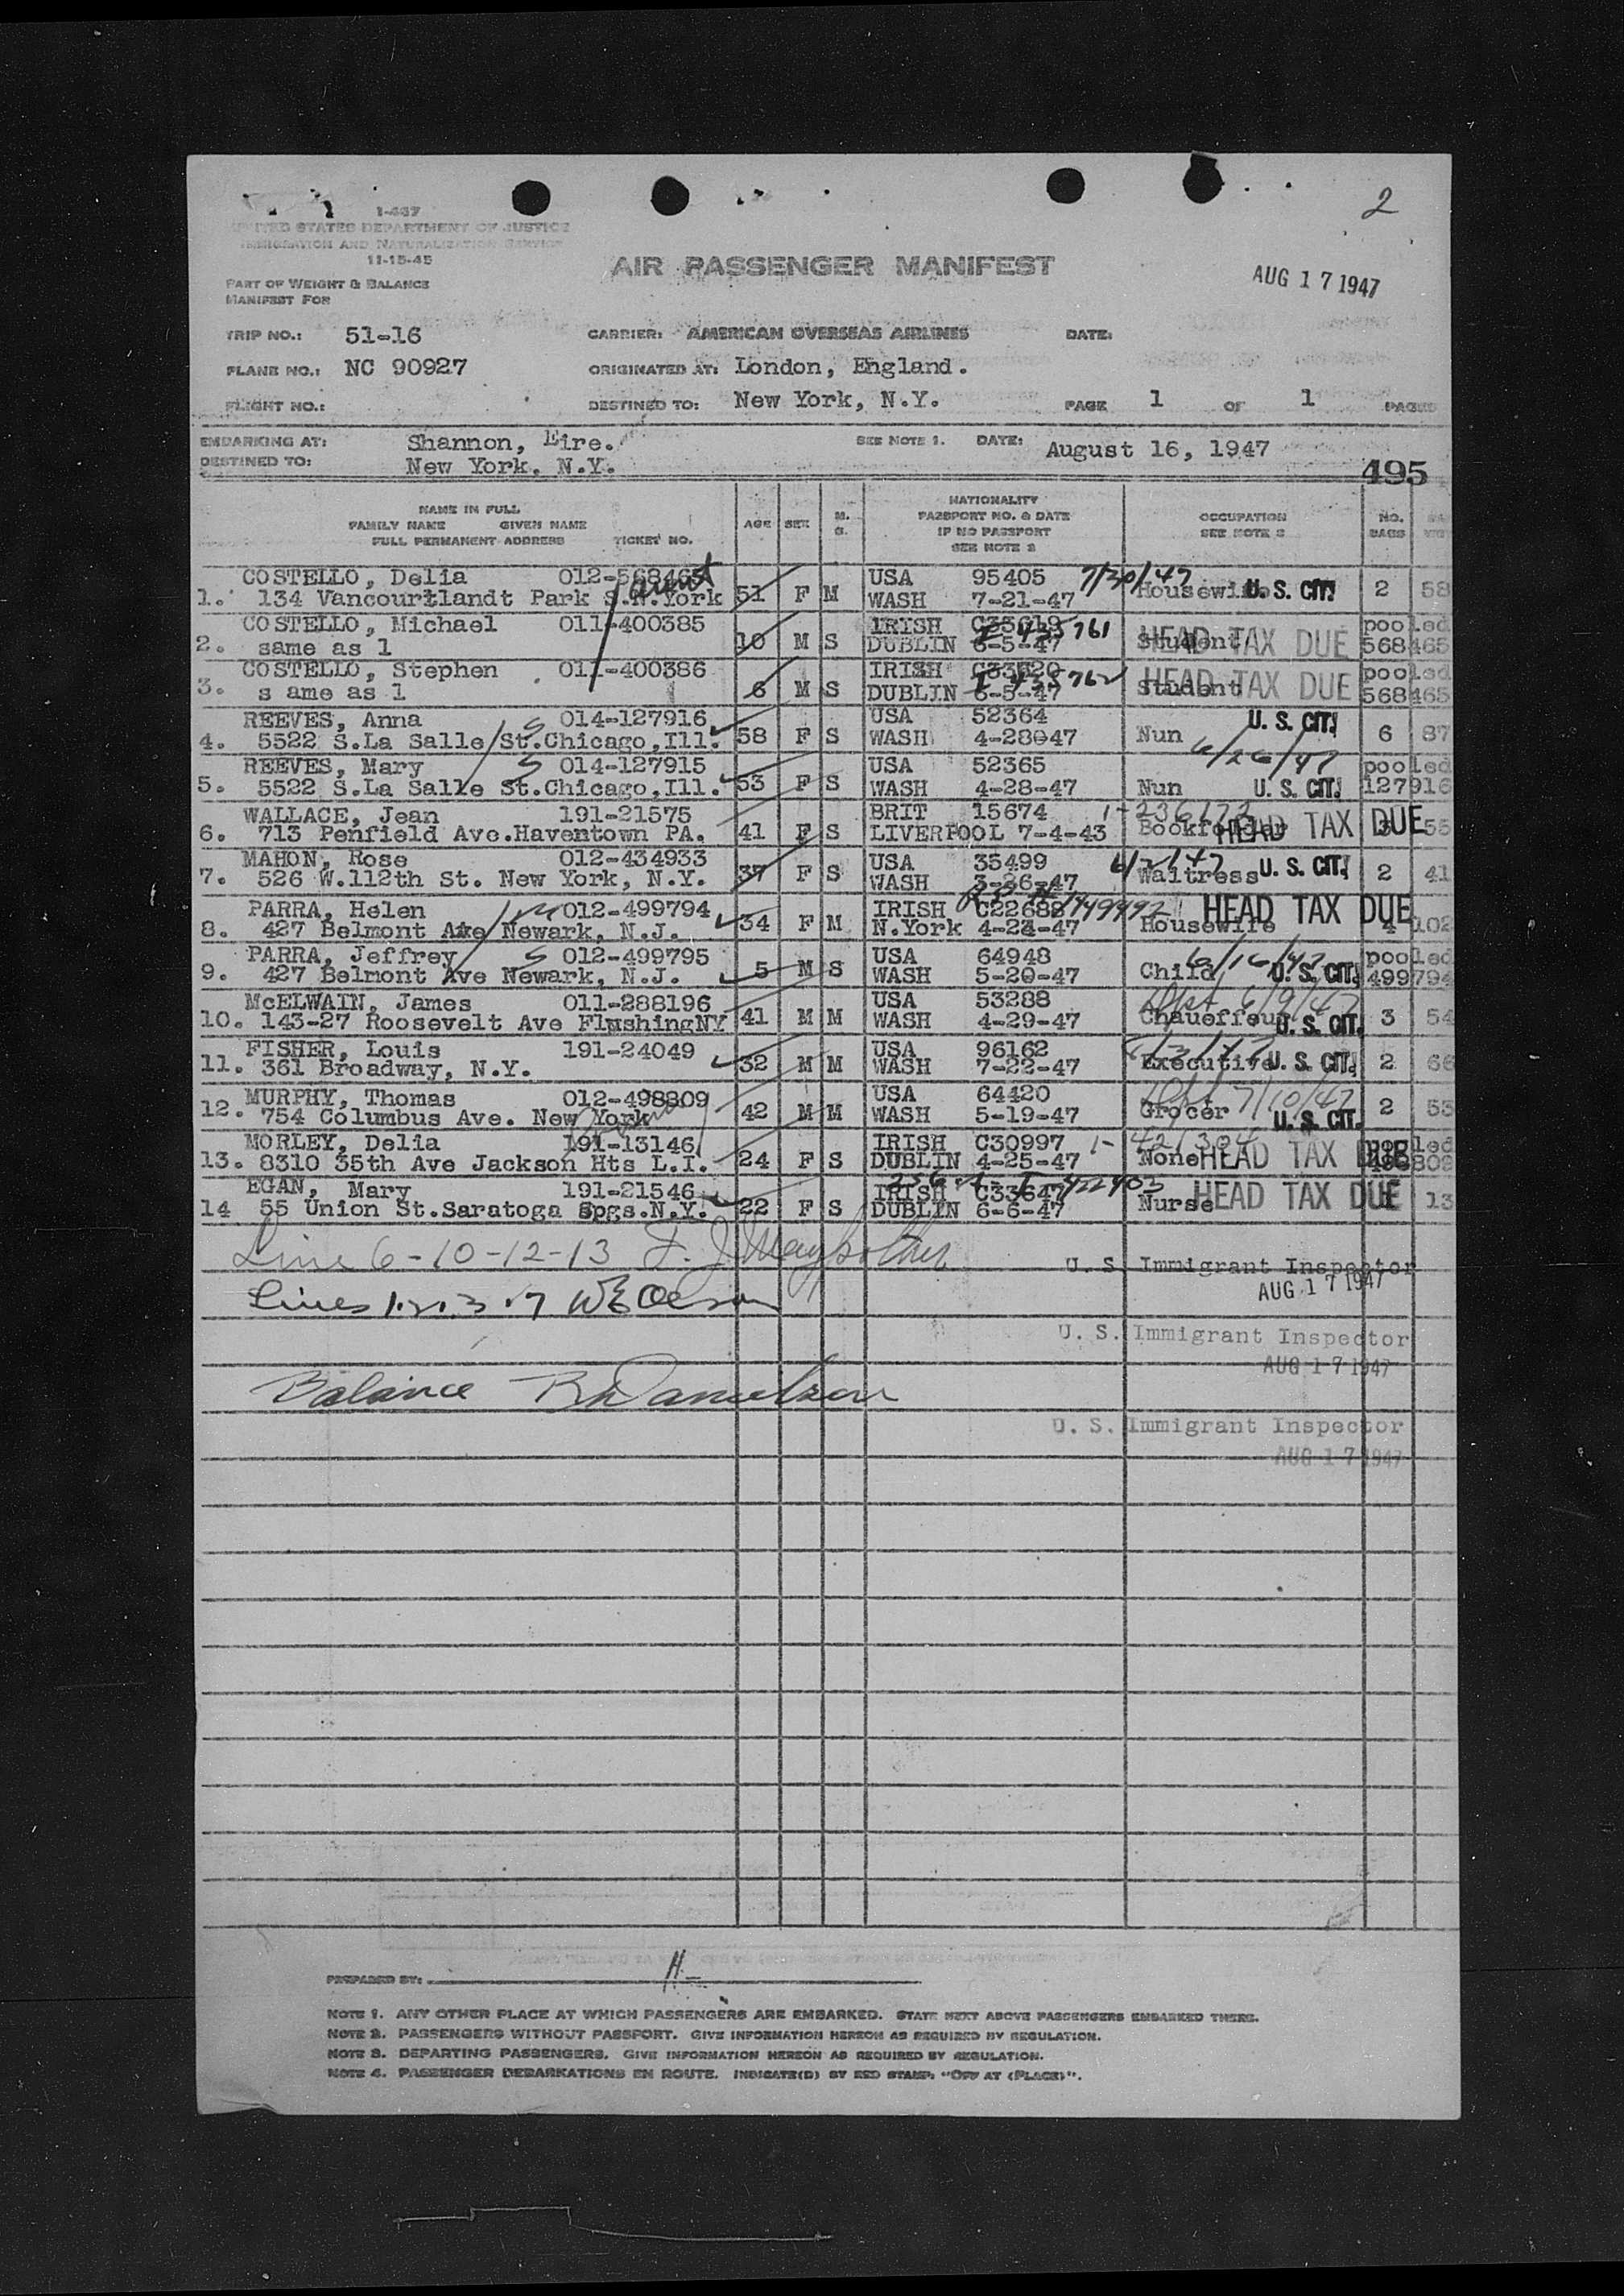 2
1-467
UNITED STATES DEPARTMENT OF JUSTICE
IMMIGRATION AND NATURALIZATION SERVICE
11-15-45
AIR PASSENGER MANIFEST
AUG 17 1947
PART OF WEIGHT & BALANCE
MANIFEST FOR
TRIP NO.: 51-16 CARRIER: AMERICAN OVERSEAS AIRLINES DATE:
PLANE NO.: NC 90927 ORIGINATED AT: London, England.
FLIGHT NO.: DESTINED TO: New York, N.Y. PAGE 1 OF 1 PAGES
EMBARKING AT: Shannon, Eire. SEE NOTE 1. DATE: August 16, 1947
DESTINED TO: New York, N.Y.
495
NAME IN FULL
FAMILY NAME GIVEN NAME
FULL PERMANENT ADDRESS TICKET NO.
AGE SEX M. S.
NATIONALITY
PASSPORT NO. & DATE
IF NO PASSPORT
SEE NOTE 2
OCCUPATION
SEE NOTE 3
NO.
BAGS
COSTELLO, Delia 012-568465 aunt USA 95405 7/30/47
1. 134 Vancourtlandt Park S.N.York 51 F M WASH 7-21-47 Housewife U. S. CIT. 2 58
COSTELLO, Michael 011-400385 IRISH C33619 I 435761 pooled
2. same as 1 10 M S DUBLIN 6-5-47 Student HEAD TAX DUE 568465
COSTELLO, Stephen 011-400386 IRISH C33620 I 435762 pooled
3. s ame as 1 6 M S DUBLIN 6-5-47 Student HEAD TAX DUE 568465
REEVES, Anna S 014-127916 USA 52364 U. S. CIT.
4. 5522 S.La Salle St.Chicago,Ill. 58 F S WASH 4-28047 Nun 6 87
REEVES, Mary S 014-127915 USA 52365 6/26/47 pooled
5. 5522 S.La Salle St.Chicago,Ill. 53 F S WASH 4-28-47 Nun U. S. CIT. 127916
WALLACE, Jean 191-21575 BRIT 15674 1-236173
6. 713 Penfield Ave.Haventown PA. 41 F S LIVERPOOL 7-4-43 HEAD TAX DUE 55
MAHON, Rose 012-434933 USA 35499
7. 526 W.112th St. New York, N.Y. 37 F S WASH 3-26-47 Waitress U. S. CIT. 2 41
PARRA, Helen M 012-499794 IRISH C22688 HEAD TAX DUE
8. 427 Belmont Ave Newark, N.J. 34 F M N.York 4-24-47 Housewife 4 102
PARRA, Jeffrey S 012-499795 USA 64948 6/16/47 pooled
9. 427 Belmont Ave Newark, N.J. 5 M S WASH 5-20-47 Child U. S. CIT. 499794
McELWAIN, James 011-288196 USA 53288 6/9/47
10. 143-27 Roosevelt Ave FlushingNY 41 M M WASH 4-29-47 Chauffeur U. S. CIT. 3 54
FISHER, Louis 191-24049 USA 96162
11. 361 Broadway, N.Y. 32 M M WASH 7-22-47 Executive U. S. CIT. 2 66
MURPHY, Thomas 012-498809 USA 64420 7/10/47
12. 754 Columbus Ave. New York 42 M M WASH 5-19-47 Grocer U. S. CIT. 2 53
MORLEY, Delia 191-13146 IRISH C30997 1-421304
13. 8310 35th Ave Jackson Hts L.I. 24 F S DUBLIN 4-25-47 None HEAD TAX DUE
EGAN, Mary 191-21546 IRISH C33647 I-422403
14 55 Union St.Saratoga Spgs.N.Y. 22 F S DUBLIN 6-6-47 Nurse HEAD TAX DUE 13
Line 6-10-12-13 F. J.
U. S. Immigrant Inspector
AUG 17 1947
Lines 1.2.3.7 W E Olson
U. S. Immigrant Inspector
AUG 17 1947
Balance Danielson
U. S. Immigrant Inspector
AUG 17 1947
PREPARED BY:
NOTE 1. ANY OTHER PLACE AT WHICH PASSENGERS ARE EMBARKED. STATE NEXT ABOVE PASSENGERS EMBARKED THERE.
NOTE 2. PASSENGERS WITHOUT PASSPORT. GIVE INFORMATION HEREON AS REQUIRED BY REGULATION.
NOTE 3. DEPARTING PASSENGERS. GIVE INFORMATION HEREON AS REQUIRED BY REGULATION.
NOTE 4. PASSENGER DEBARKATIONS EN ROUTE. INDICATE(D) BY RED STAMP: "OFF AT (PLACE)".